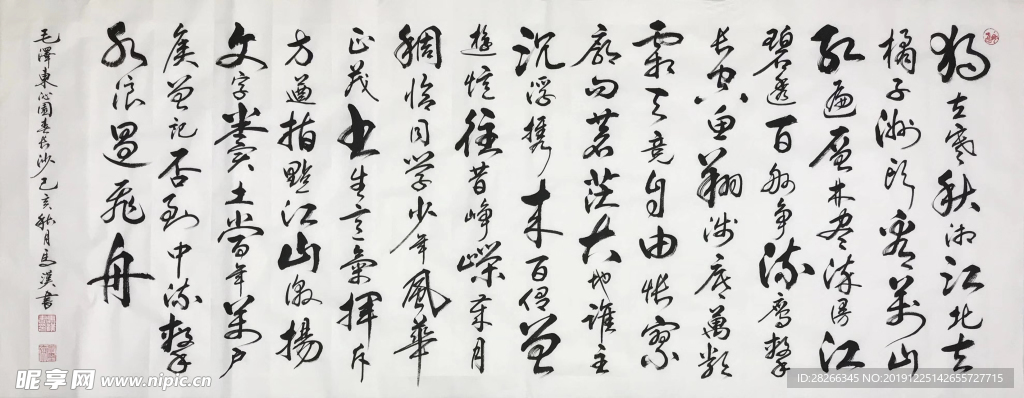 獨立寒秋湘江北去
橘子洲頭看萬山
紅遍層林盡染漫江
碧透百舸爭流鷹擊
長空魚翔淺底萬類
霜天竞自由悵寥
廓問蒼茫大地誰主
沉浮攜來百侶曾
遊憶往昔崢嶸歲月
稠恰同学少年風華
正茂书生意氣揮斥
方遒指點江山激揚
文字糞土當年萬户
侯曾記否到中流擊
水浪遏飛舟
毛澤東沁園春長沙己亥秋月馬漢書
昵享网 www.nipic.cn
ID:28266345 NO:20191225142655727715